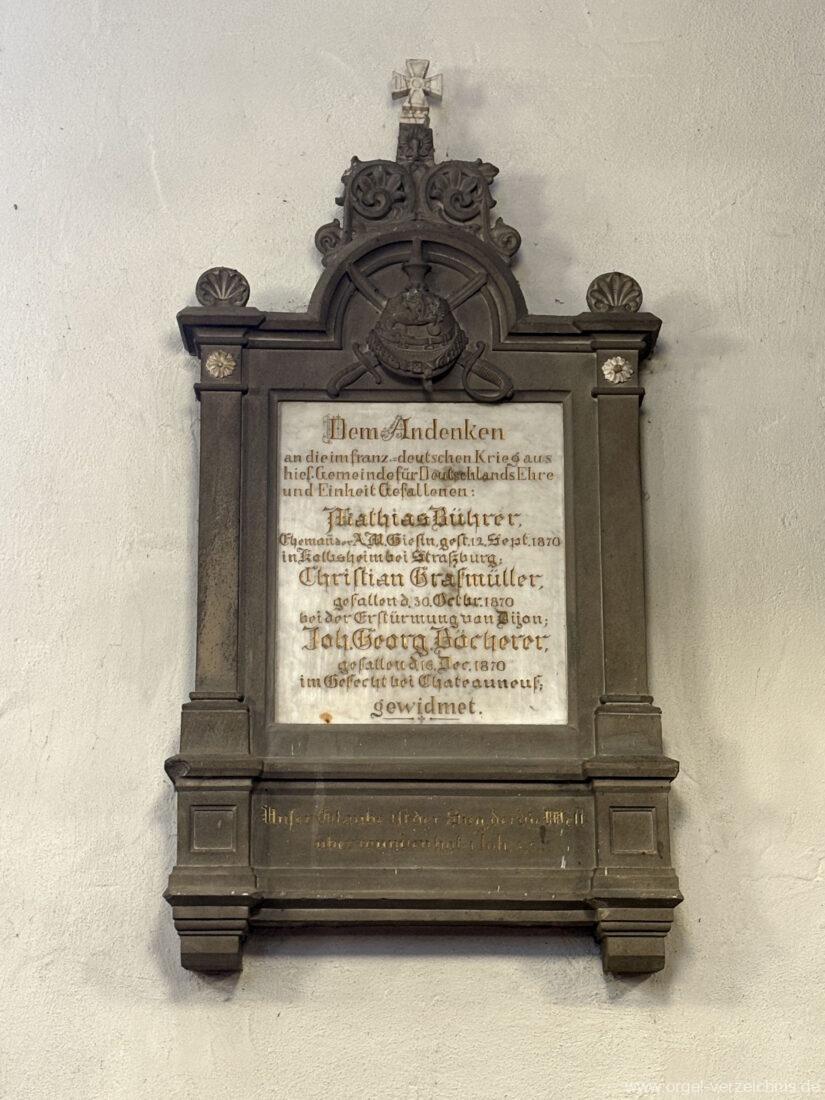 Dem Andenken
an die im franz.-deutschen Krieg aus
hies. Gemeinde für Deutschlands Ehre
und Einheit Gefallenen:
Mathias Bührer,
Ehemann der A. M. gest. 12. Sept. 1870
in Kolbsheim bei Straßburg;
Christian Grasmüller,
gefallen d. 30. Octbr. 1870
bei der Erstürmung von Dijon;
Joh. Georg Böcherer,
gefallen d. 16. Dec. 1870
im Gefecht bei Chateauneuf;
gewidmet.
Unser Glaube ist der Sieg der die Welt
überwunden hat. 1 Joh.
www.orgel-verzeichnis.de